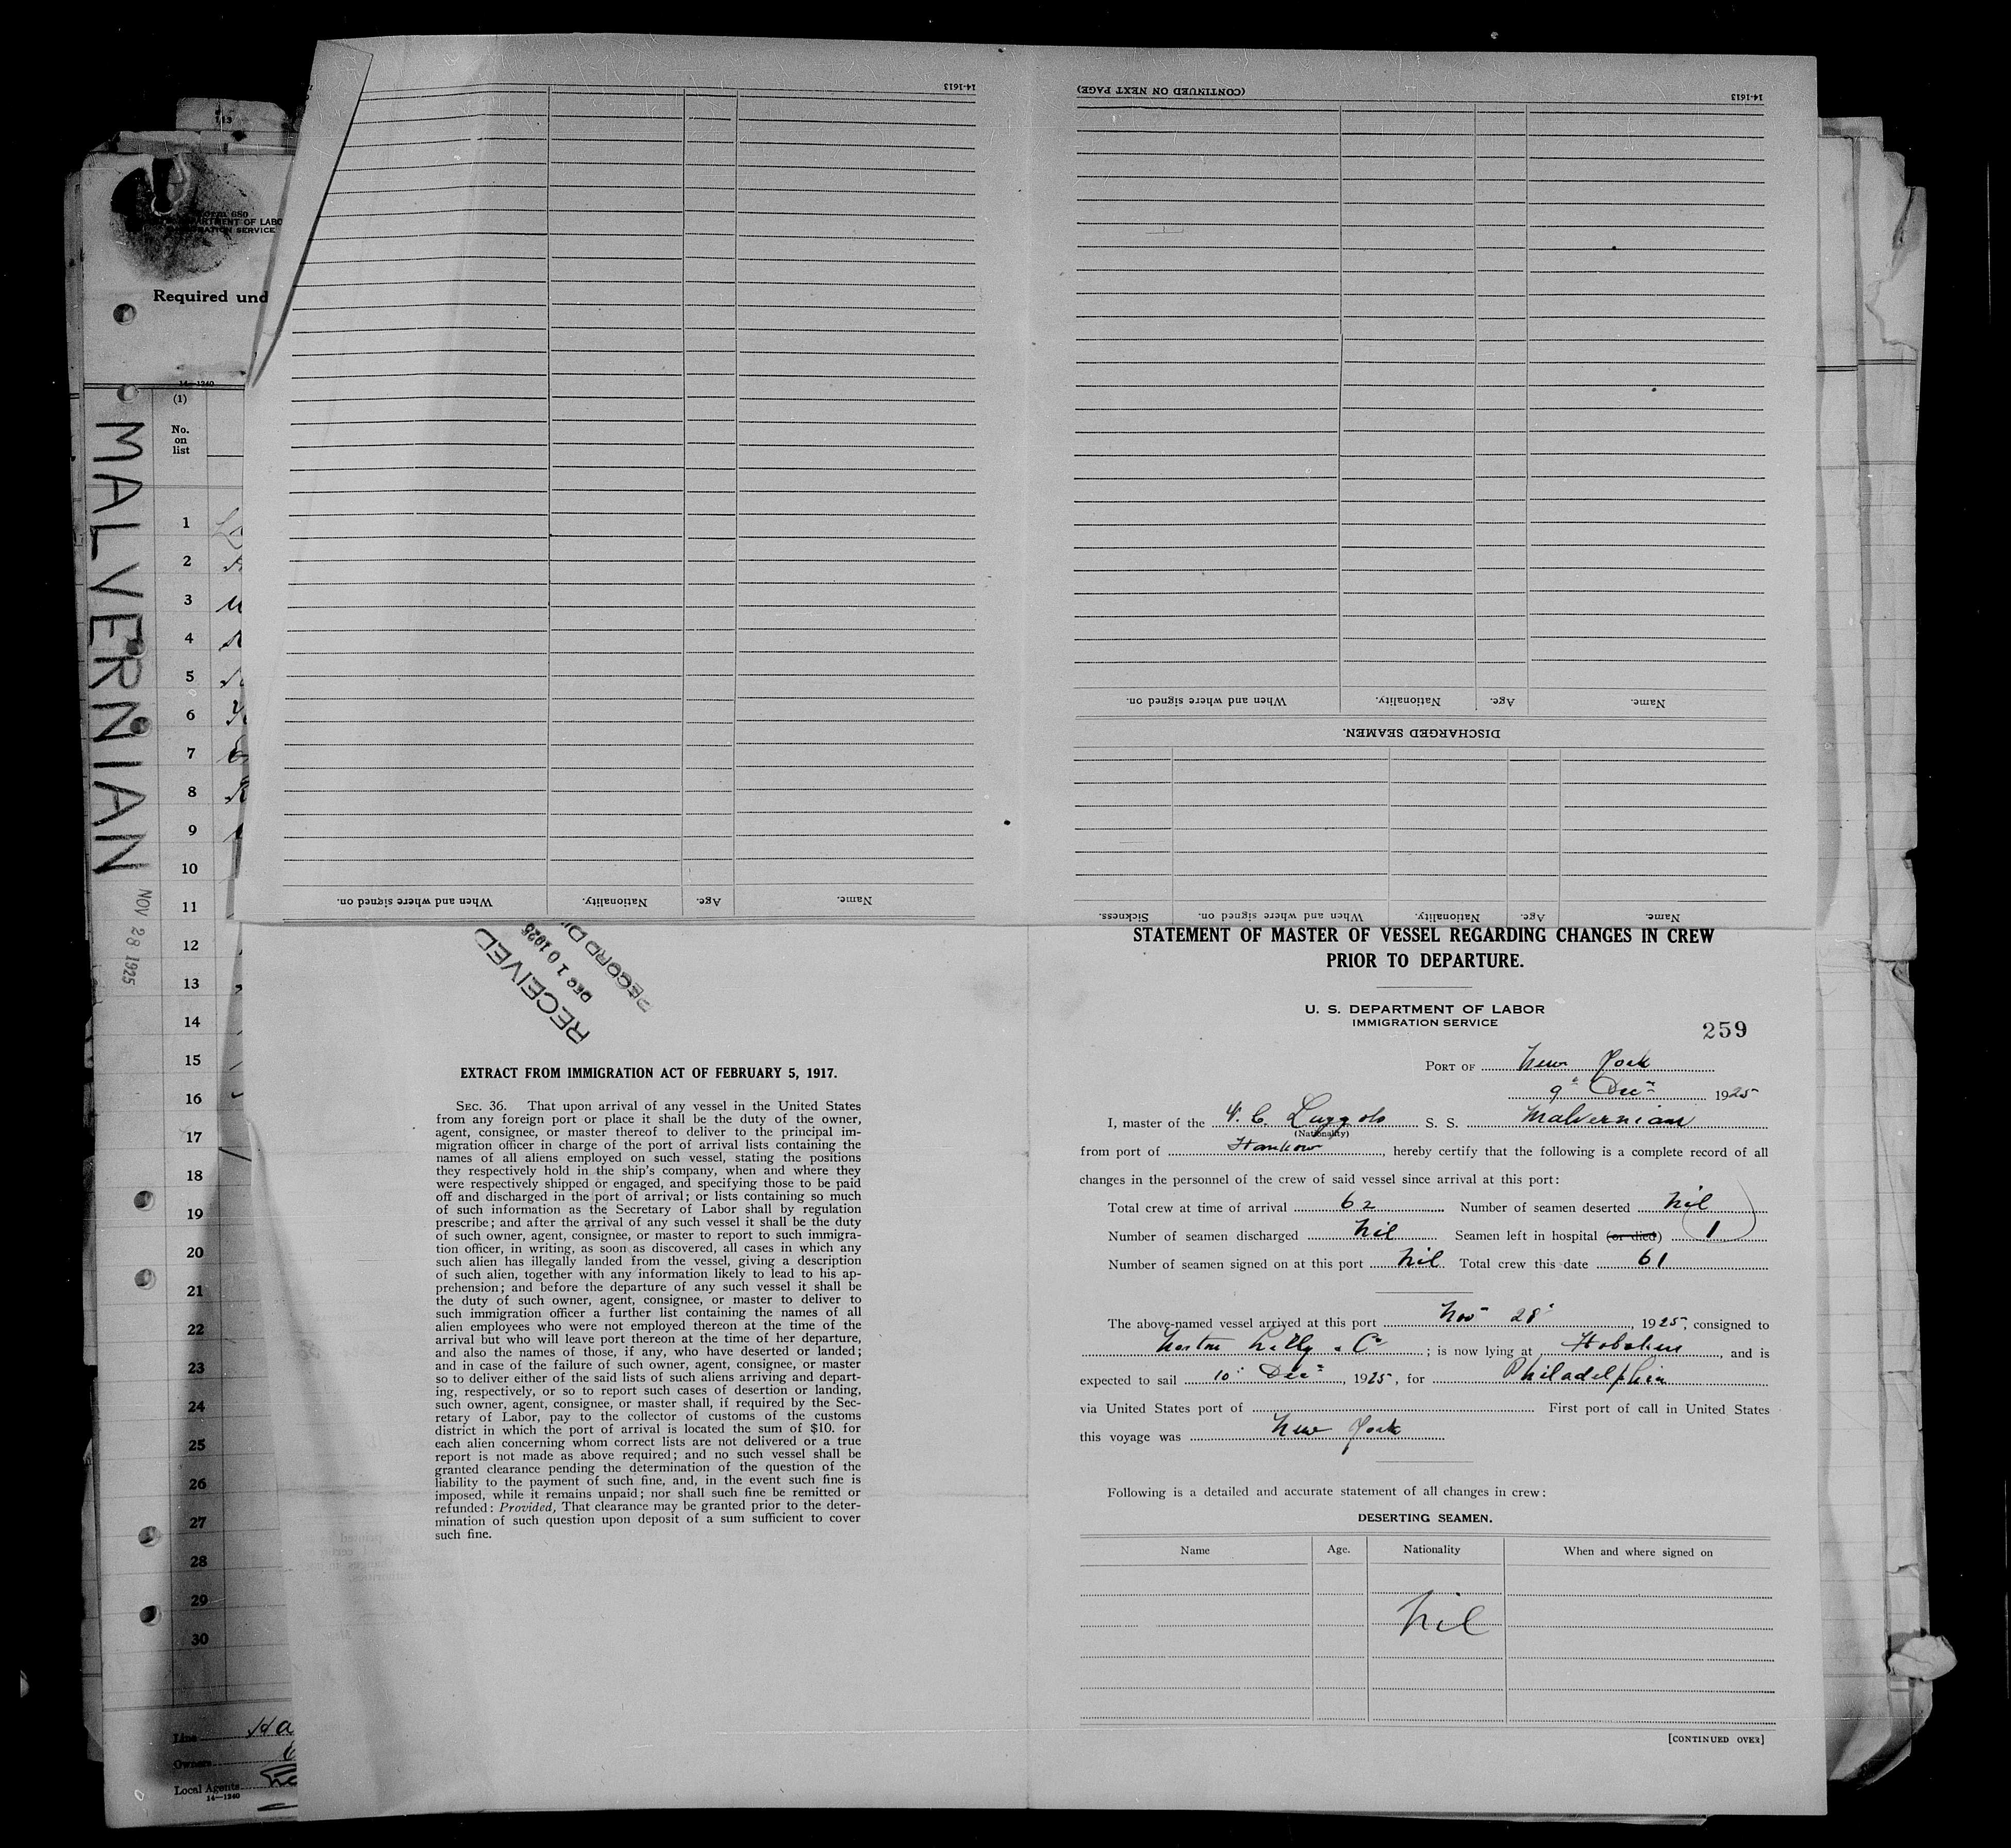 113
Form 680
DEPARTMENT OF LABO
IMMIGRATION SERVICE
Required und
14—1240
(1)
No.
on
list
1
2
3
4
5
6
7
8
9
10
11
12
13
14
15
16
17
18
19
20
21
22
23
24
25
26
27
28
29
30
MALVERNIAN
NOV 28 1925
Line
Owners
Local Agents
14—1240
14-1613
When and where signed on.
Nationality.
Age.
Name.
(CONTINUED ON NEXT PAGE)
14-1613
When and where signed on.
Nationality.
Age.
Name.
DISCHARGED SEAMEN.
Sickness.
When and where signed on.
Nationality.
Age.
Name.
RECEIVED
DEC 10 1925
RECORD DI
EXTRACT FROM IMMIGRATION ACT OF FEBRUARY 5, 1917.
SEC. 36. That upon arrival of any vessel in the United States
from any foreign port or place it shall be the duty of the owner,
agent, consignee, or master thereof to deliver to the principal im-
migration officer in charge of the port of arrival lists containing the
names of all aliens employed on such vessel, stating the positions
they respectively hold in the ship's company, when and where they
were respectively shipped or engaged, and specifying those to be paid
off and discharged in the port of arrival; or lists containing so much
of such information as the Secretary of Labor shall by regulation
prescribe; and after the arrival of any such vessel it shall be the duty
of such owner, agent, consignee, or master to report to such immigra-
tion officer, in writing, as soon as discovered, all cases in which any
such alien has illegally landed from the vessel, giving a description
of such alien, together with any information likely to lead to his ap-
prehension; and before the departure of any such vessel it shall be
the duty of such owner, agent, consignee, or master to deliver to
such immigration officer a further list containing the names of all
alien employees who were not employed thereon at the time of the
arrival but who will leave port thereon at the time of her departure,
and also the names of those, if any, who have deserted or landed;
and in case of the failure of such owner, agent, consignee, or master
so to deliver either of the said lists of such aliens arriving and depart-
ing, respectively, or so to report such cases of desertion or landing,
such owner, agent, consignee, or master shall, if required by the Sec-
retary of Labor, pay to the collector of customs of the customs
district in which the port of arrival is located the sum of $10. for
each alien concerning whom correct lists are not delivered or a true
report is not made as above required; and no such vessel shall be
granted clearance pending the determination of the question of the
liability to the payment of such fine, and, in the event such fine is
imposed, while it remains unpaid; nor shall such fine be remitted or
refunded: Provided, That clearance may be granted prior to the deter-
mination of such question upon deposit of a sum sufficient to cover
such fine.
STATEMENT OF MASTER OF VESSEL REGARDING CHANGES IN CREW
PRIOR TO DEPARTURE.
U. S. DEPARTMENT OF LABOR
IMMIGRATION SERVICE
259
PORT OF New York
9th Decr 1925
I, master of the S. S. Malvernian
(Nationality)
from port of Hankow, hereby certify that the following is a complete record of all
changes in the personnel of the crew of said vessel since arrival at this port:
Total crew at time of arrival 62 Number of seamen deserted nil
Number of seamen discharged nil Seamen left in hospital (or died) 1
Number of seamen signed on at this port nil. Total crew this date 61
The above-named vessel arrived at this port Nov 28th, 1925, consigned to
Norton Lilly & Co; is now lying at Hoboken, and is
expected to sail 10th Decr, 1925, for Philadelphia
via United States port of First port of call in United States
this voyage was New York
Following is a detailed and accurate statement of all changes in crew:
DESERTING SEAMEN.
Name Age. Nationality When and where signed on
nil
[CONTINUED OVER]